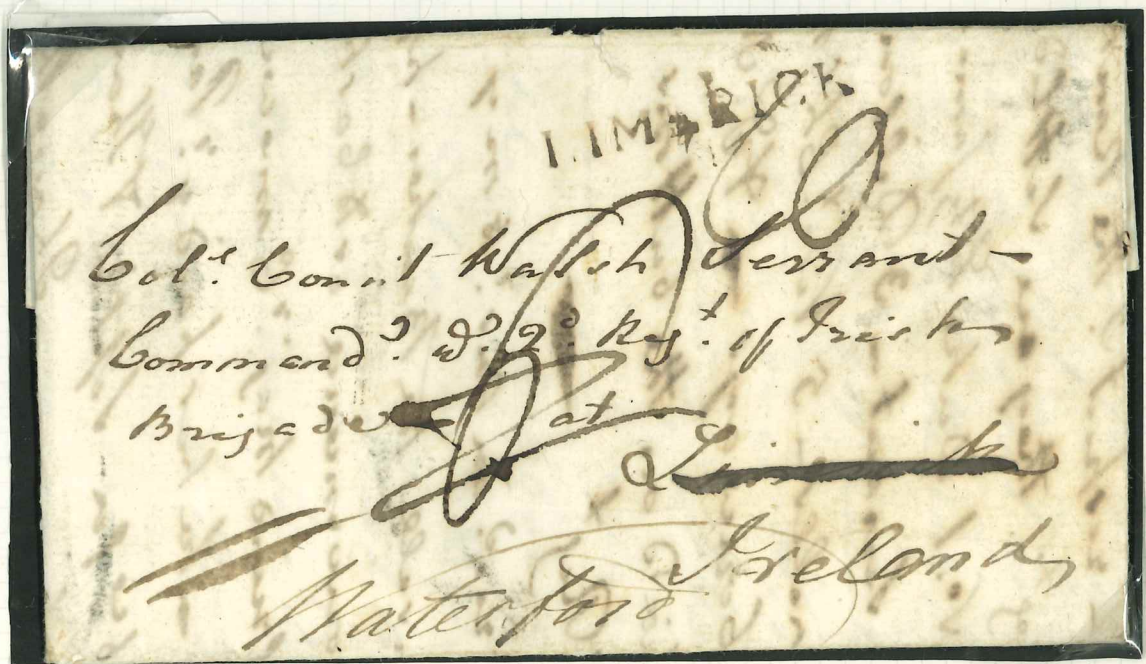 LIMERICK
Col.ˡ Count Walsh Serrant -
Command.ᵍ 2.ᵈ Reg.ᵗ of Irish
Brigade at
Limerick
Ireland,
Waterford